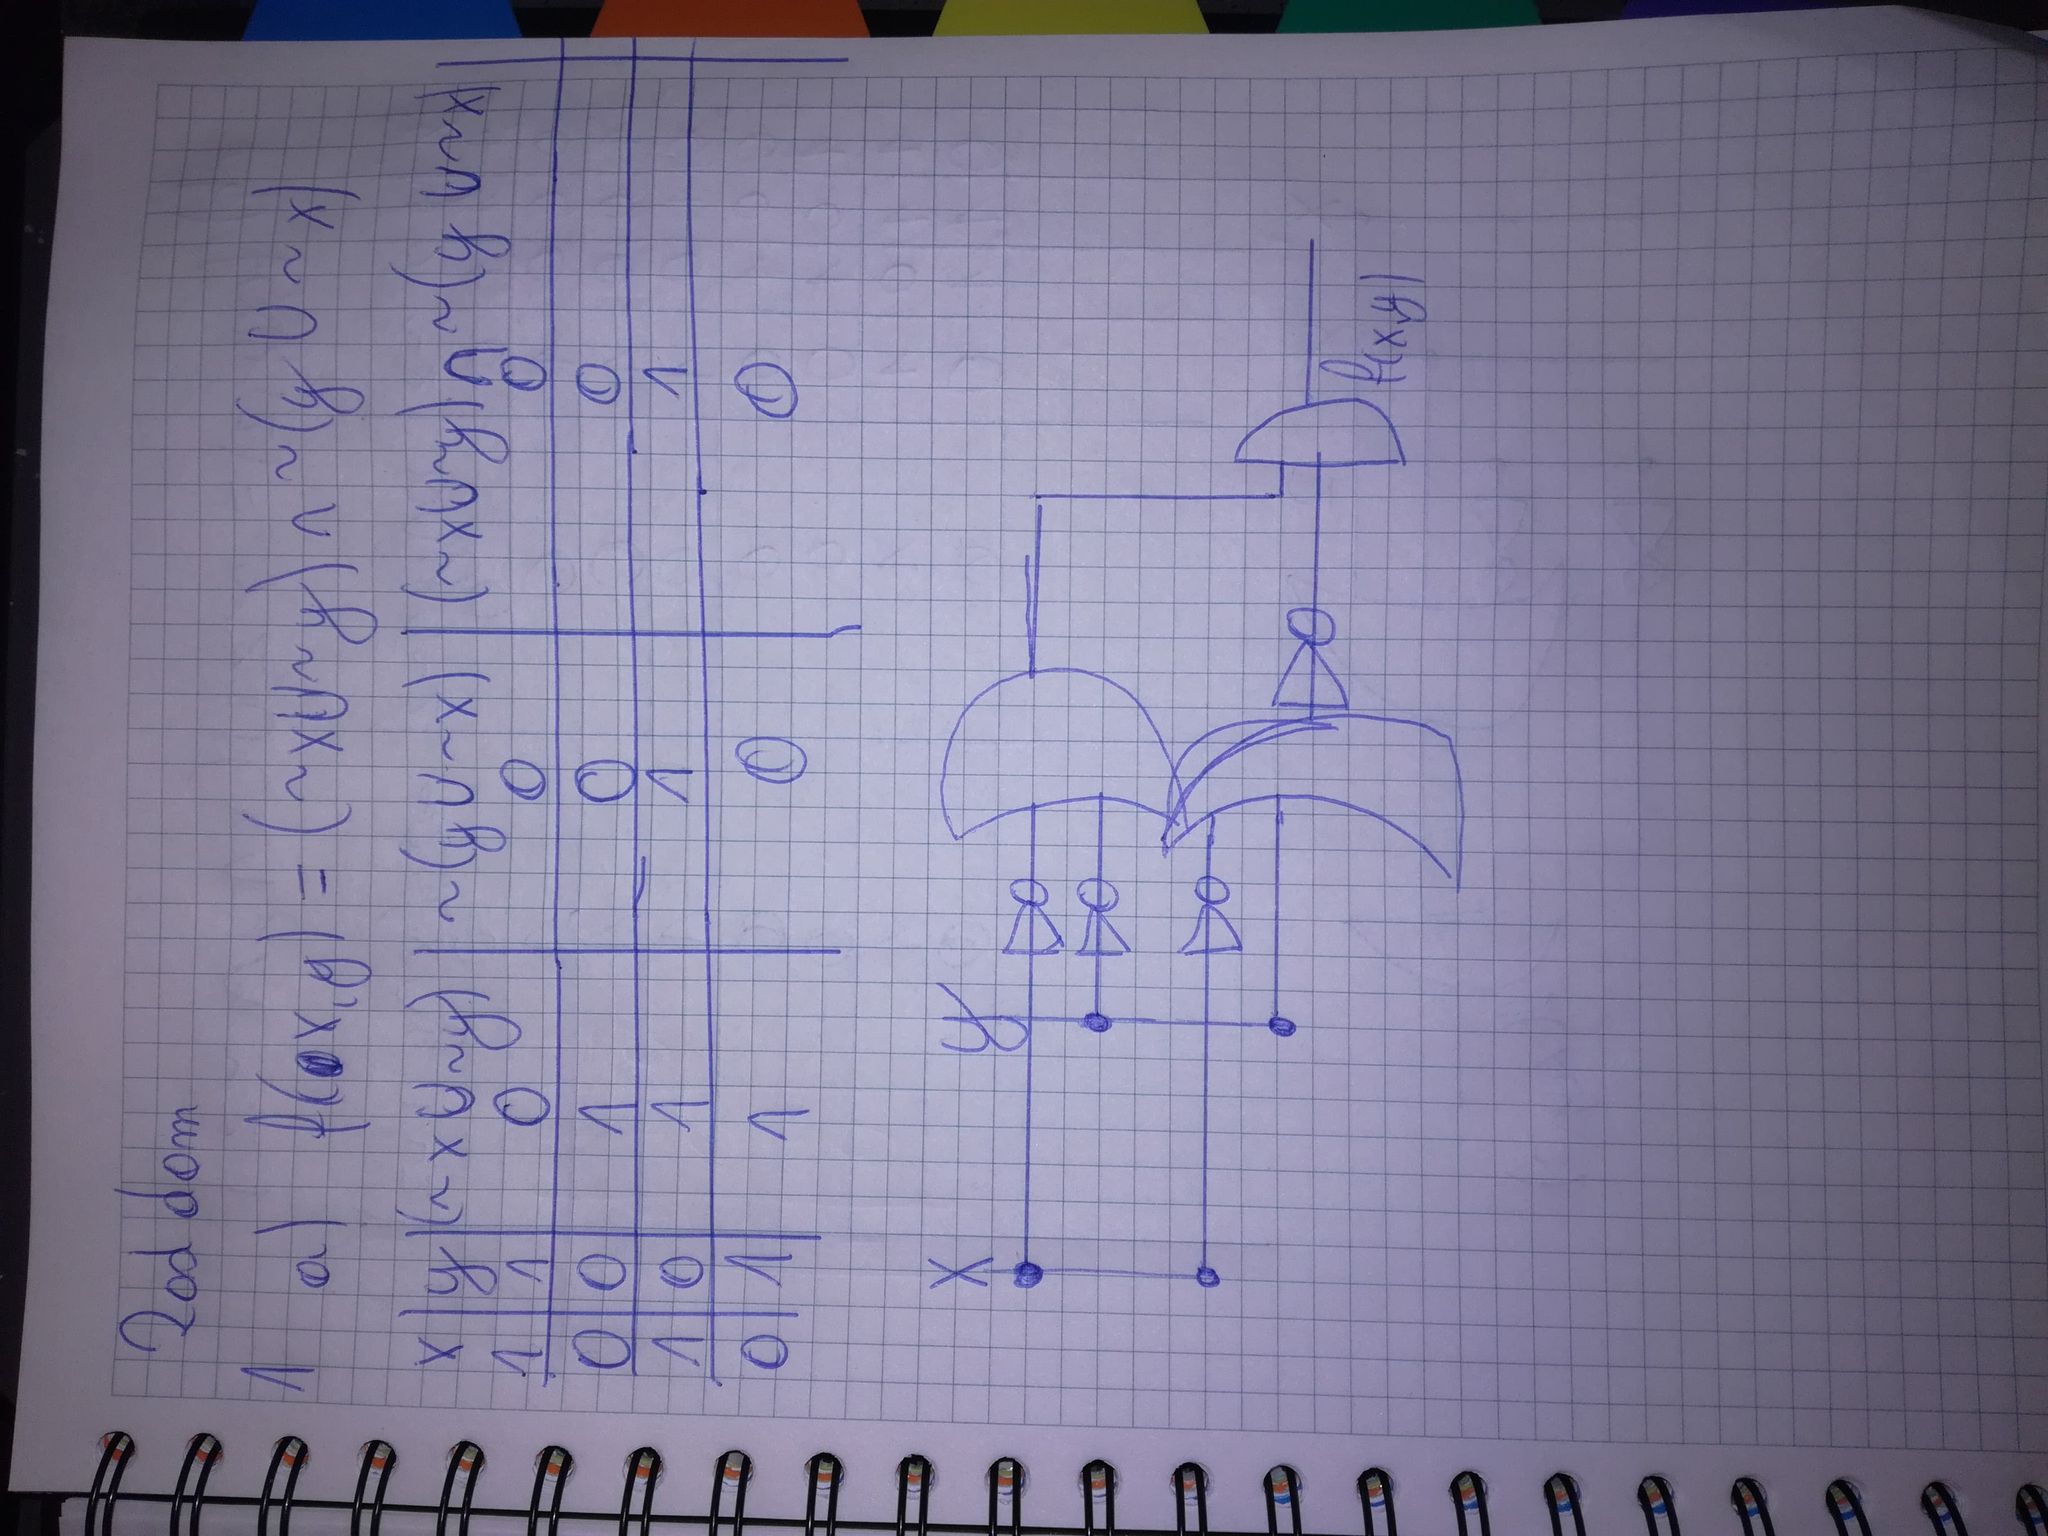 Zad dom
1 a) f(x,y) = (~x∪~y) ∩ ~(y ∪ ~x)
x y (~x∪~y) ~(y∪~x) (~x∪~y)∩~(y∪~x)
1 1 0 0 0
0 0 1 0 0
1 0 1 1 1
0 1 1 0 0
x y
f(x,y)